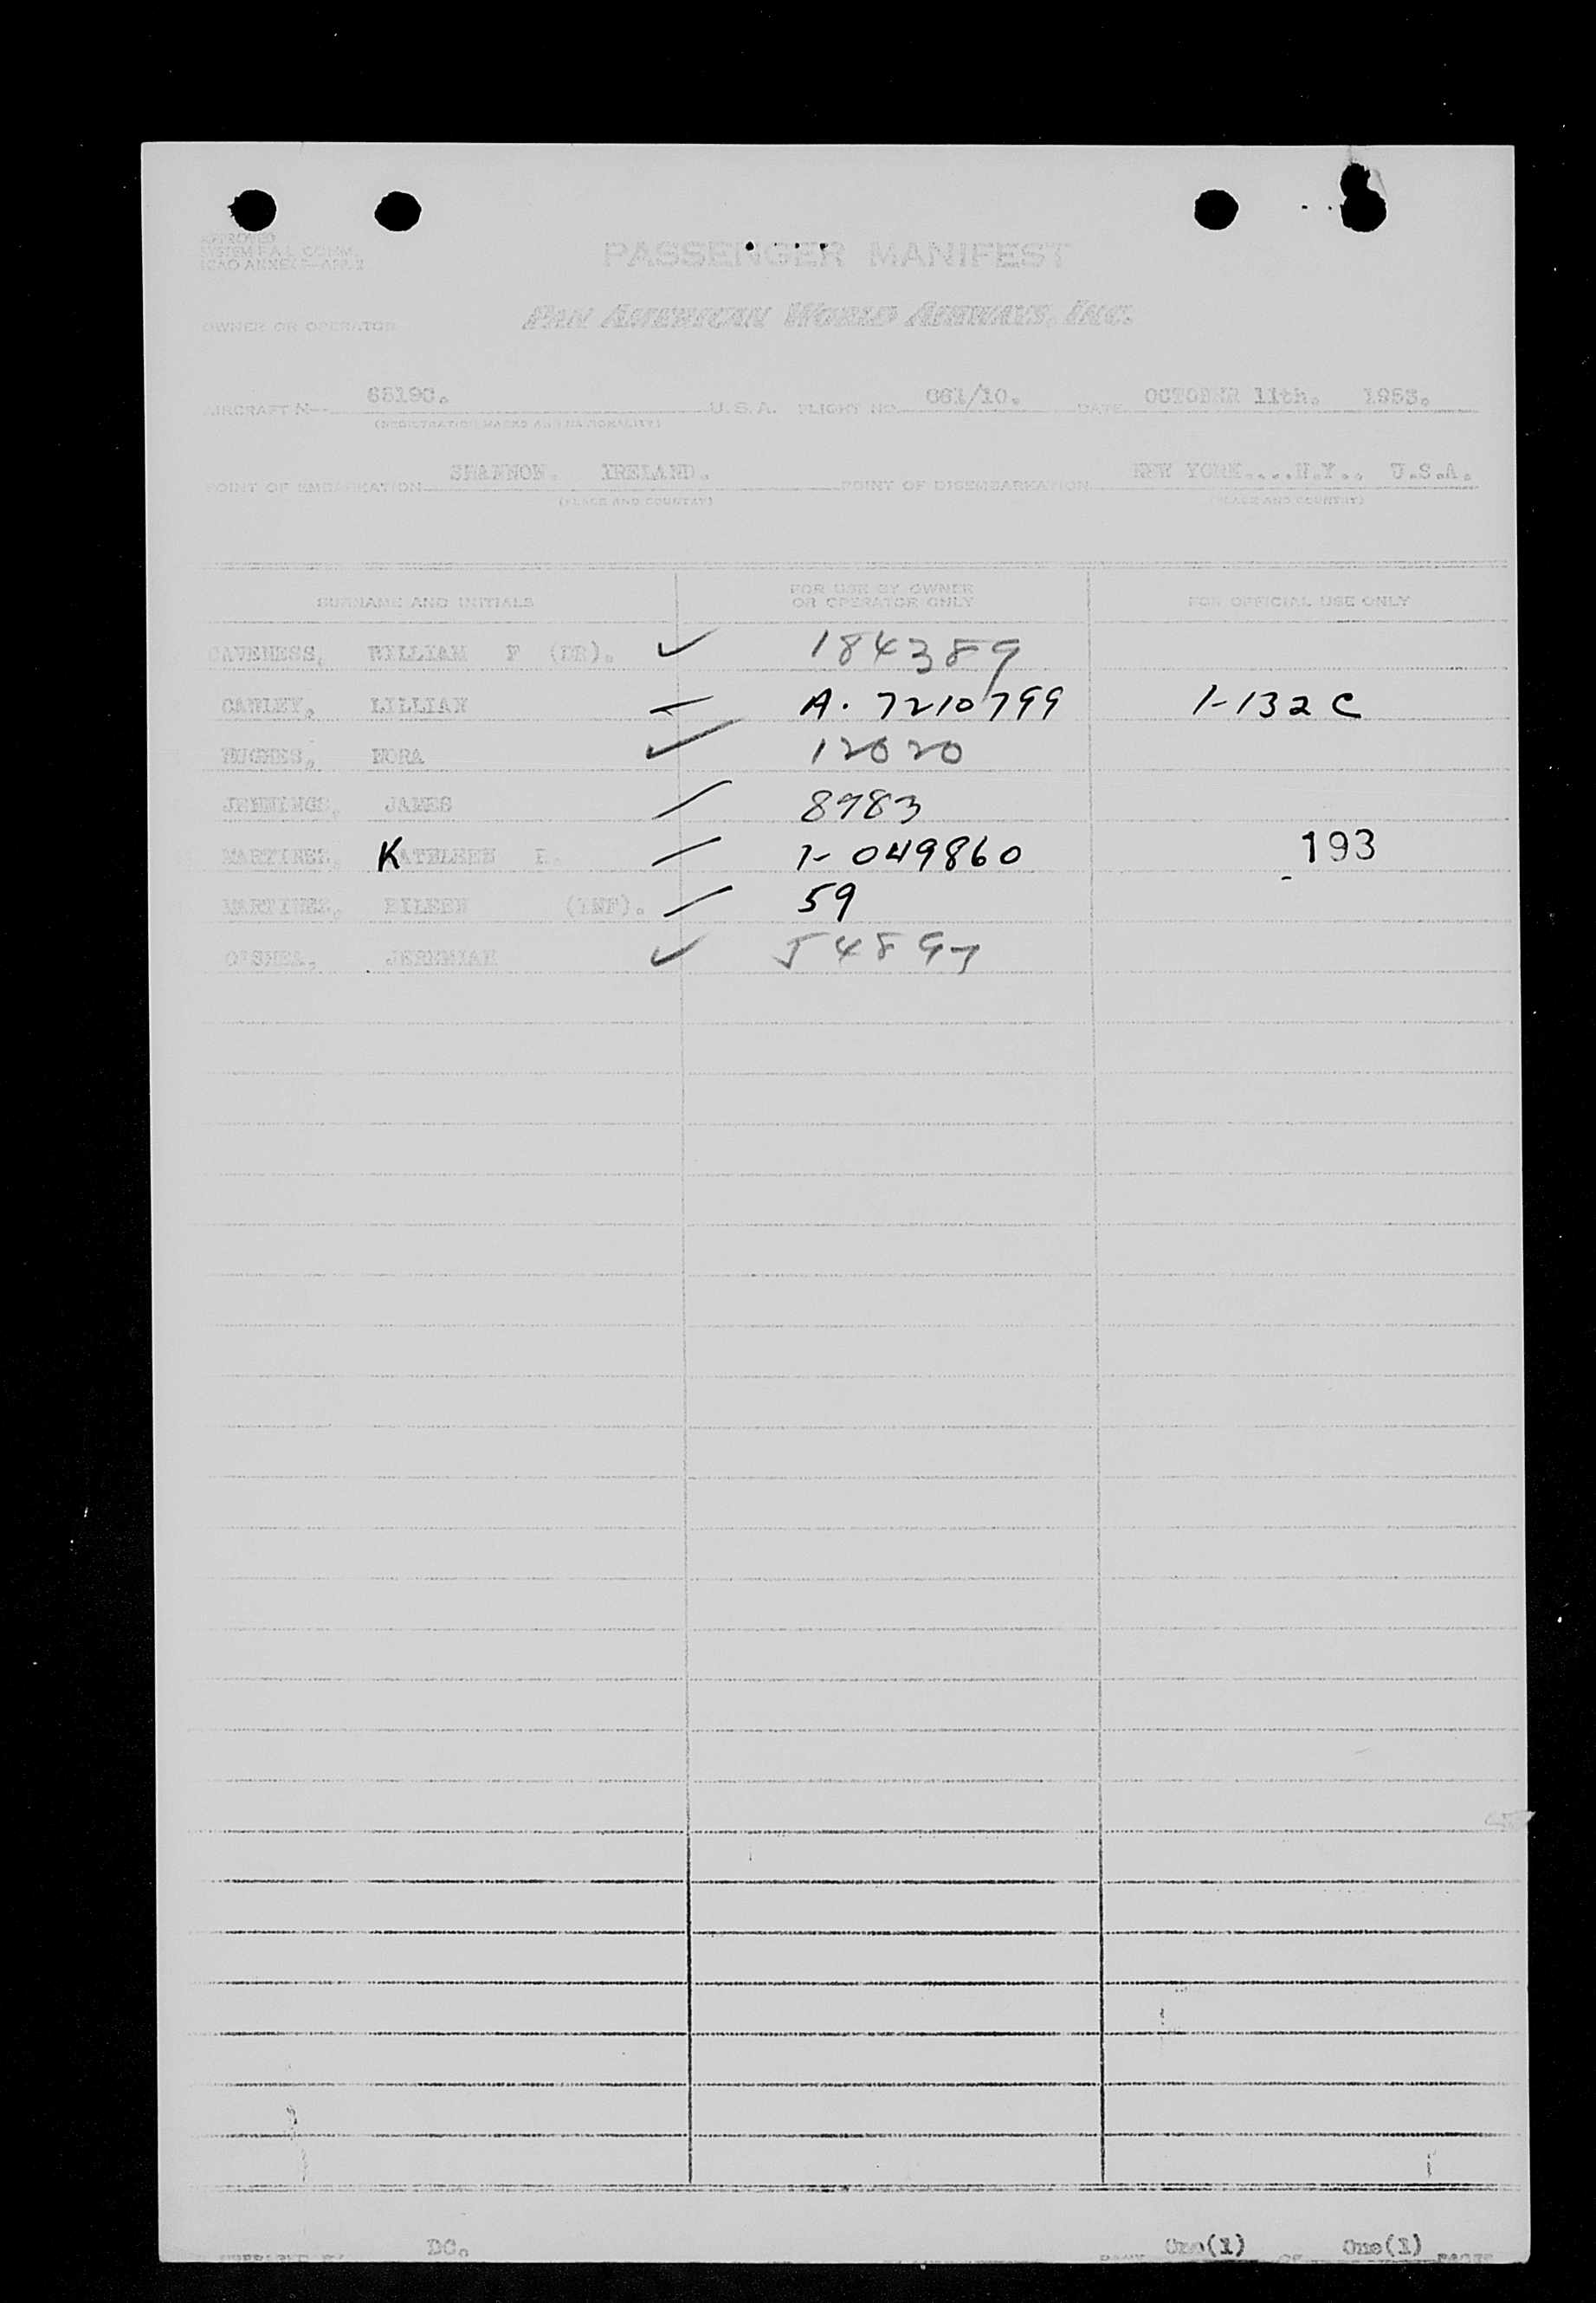 APPROVED
SYSTEM F.A.L. COMM.
ICAO ANNEX 9—APP. 2
PASSENGER MANIFEST
OWNER OR OPERATOR PAN AMERICAN WORLD AIRWAYS, INC.
AIRCRAFT N— U.S.A. FLIGHT NO. 661/10. DATE OCTOBER 11th. 1953.
(REGISTRATION MARKS AND NATIONALITY)
POINT OF EMBARKATION SHANNON. IRELAND. POINT OF DISEMBARKATION NEW YORK....N.Y., U.S.A.
(PLACE AND COUNTRY) (PLACE AND COUNTRY)
SURNAME AND INITIALS FOR USE BY OWNER OR OPERATOR ONLY FOR OFFICIAL USE ONLY
CAVENESS, WILLIAM F (DR). ✓ 184389
CAWLEY, LILLIAN A. 7210799 1-132 C
HUGHES, NORA ✓ 12020
JENNINGS, JAMES / 8983
MARTINEZ, KATHLEEN E. 193
MARTINEZ, EILEEN (INF). / 59
O'SHEA, JEREMIAH ✓ 54897
DC. PAGE One(1) OF One(1) PAGES